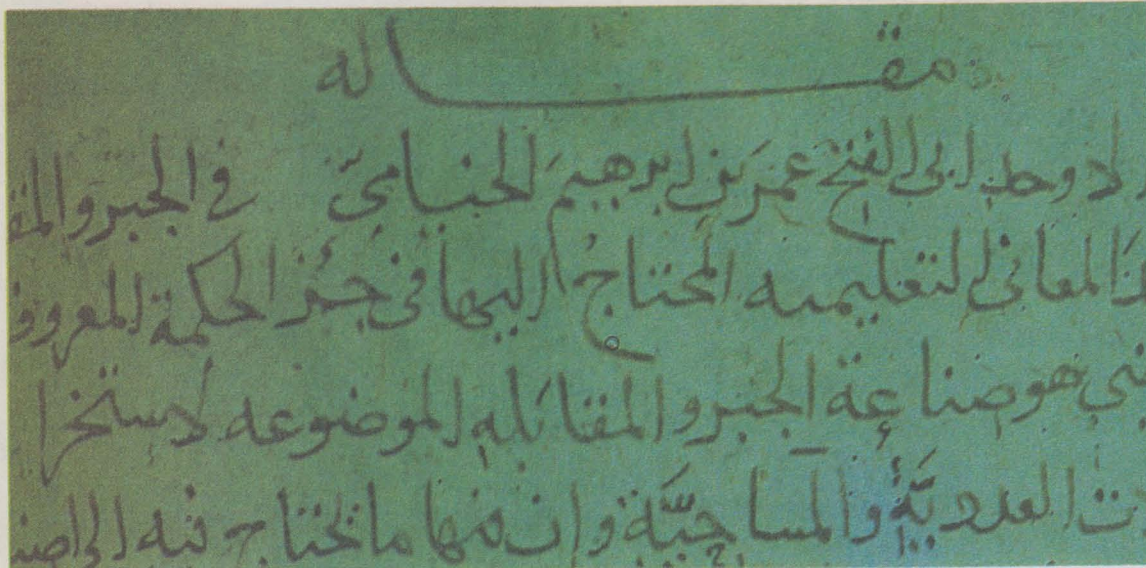 مقالة
الاوحد ابى الفتح عمر بن ابرهيم الخيامىّ فى الجبر والمقا
المعانى التعليميه المحتاج اليها فى جزء الحكمة المعروف
هو صناعة الجبر والمقابله الموضوعه لاستخرا
العددية والمساحيّة وان منها ما يحتاج فيه الى اصنا